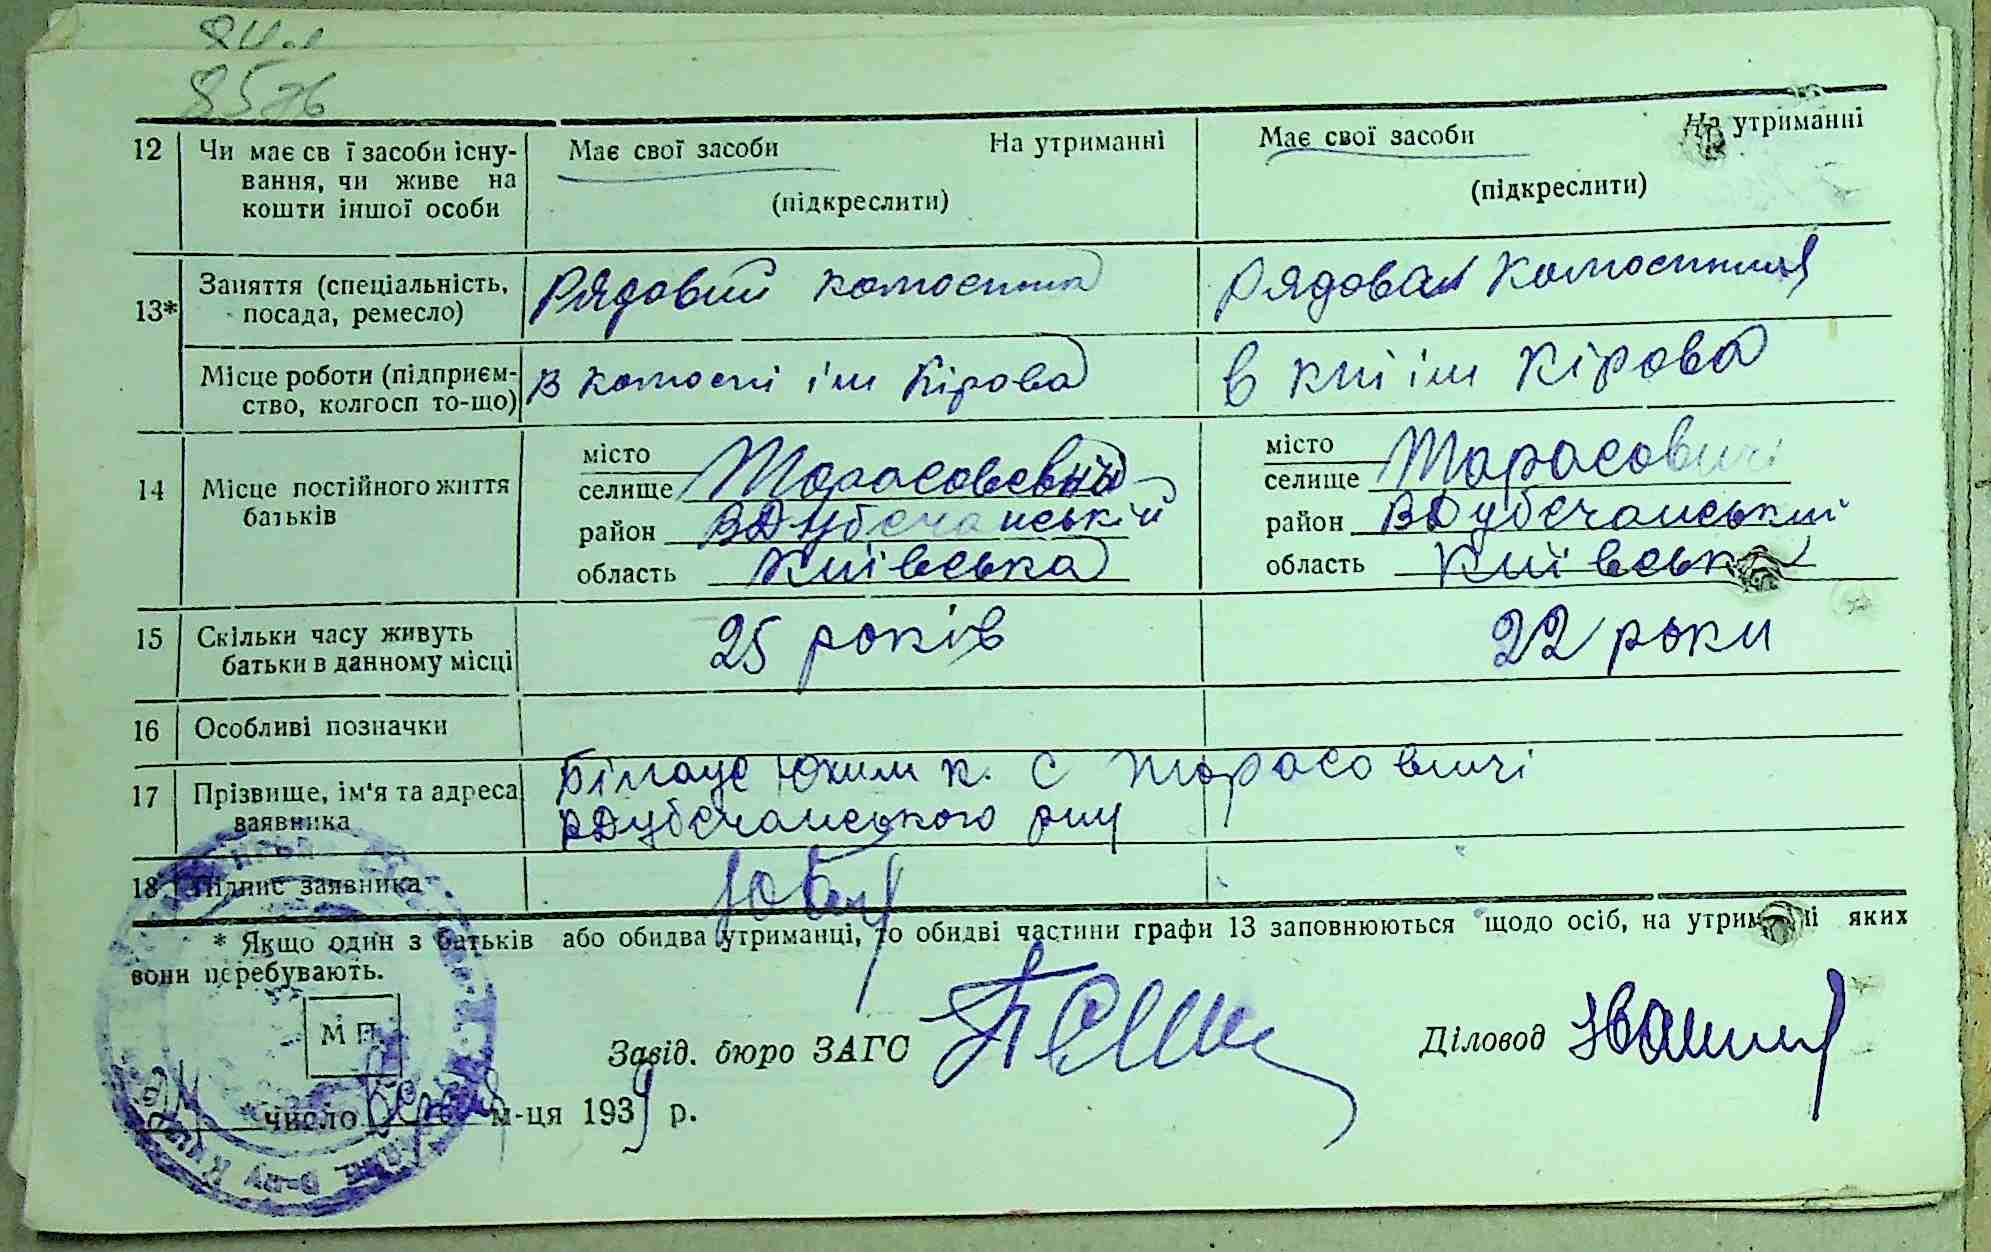 84
85 зв
12 Чи має св ї засоби існу- Має свої засоби На утриманні Має свої засоби На утриманні
вання, чи живе на (підкреслити) (підкреслити)
кошти іншої особи
13* Заняття (спеціальність, Рядовий колгоспник Рядовая колгоспниця
посада, ремесло)
Місце роботи (підприєм- В колгоспі ім Кірова в клг ім Кірова
ство, колгосп то-що)
14 Місце постійного життя місто місто
батьків селище Тарасовичі селище Тарасовичі
район ВДубечанський район ВДубечанський
область Київська область Київська
15 Скільки часу живуть 25 років 22 роки
батьки в данному місці
16 Особливі позначки
17 Прізвище, ім'я та адреса Білаус Юхим К. С Тарасовичі
заявника ВДубечанського р-ну
18 Підпис заявника
* Якщо один з батьків або обидва утриманці, то обидві частини графи 13 заповнюються щодо осіб, на утриманні яких
вони перебувають.
М П
Завід. бюро ЗАГС Діловод
число м-ця 1939 р.